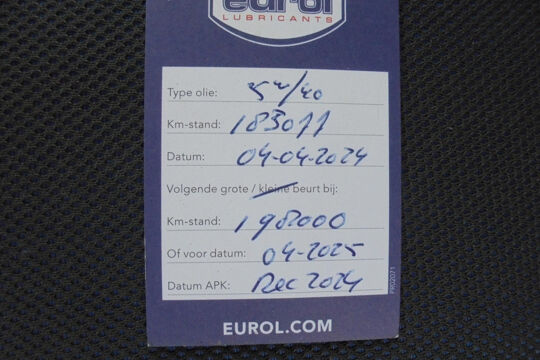 eurol
LUBRICANTS
Type olie: 5w/40
Km-stand: 183011
Datum: 04-04-2024
Volgende grote / kleine beurt bij:
Km-stand: 198000
Of voor datum: 04-2025
Datum APK: Dec 2024
PR02071
EUROL.COM